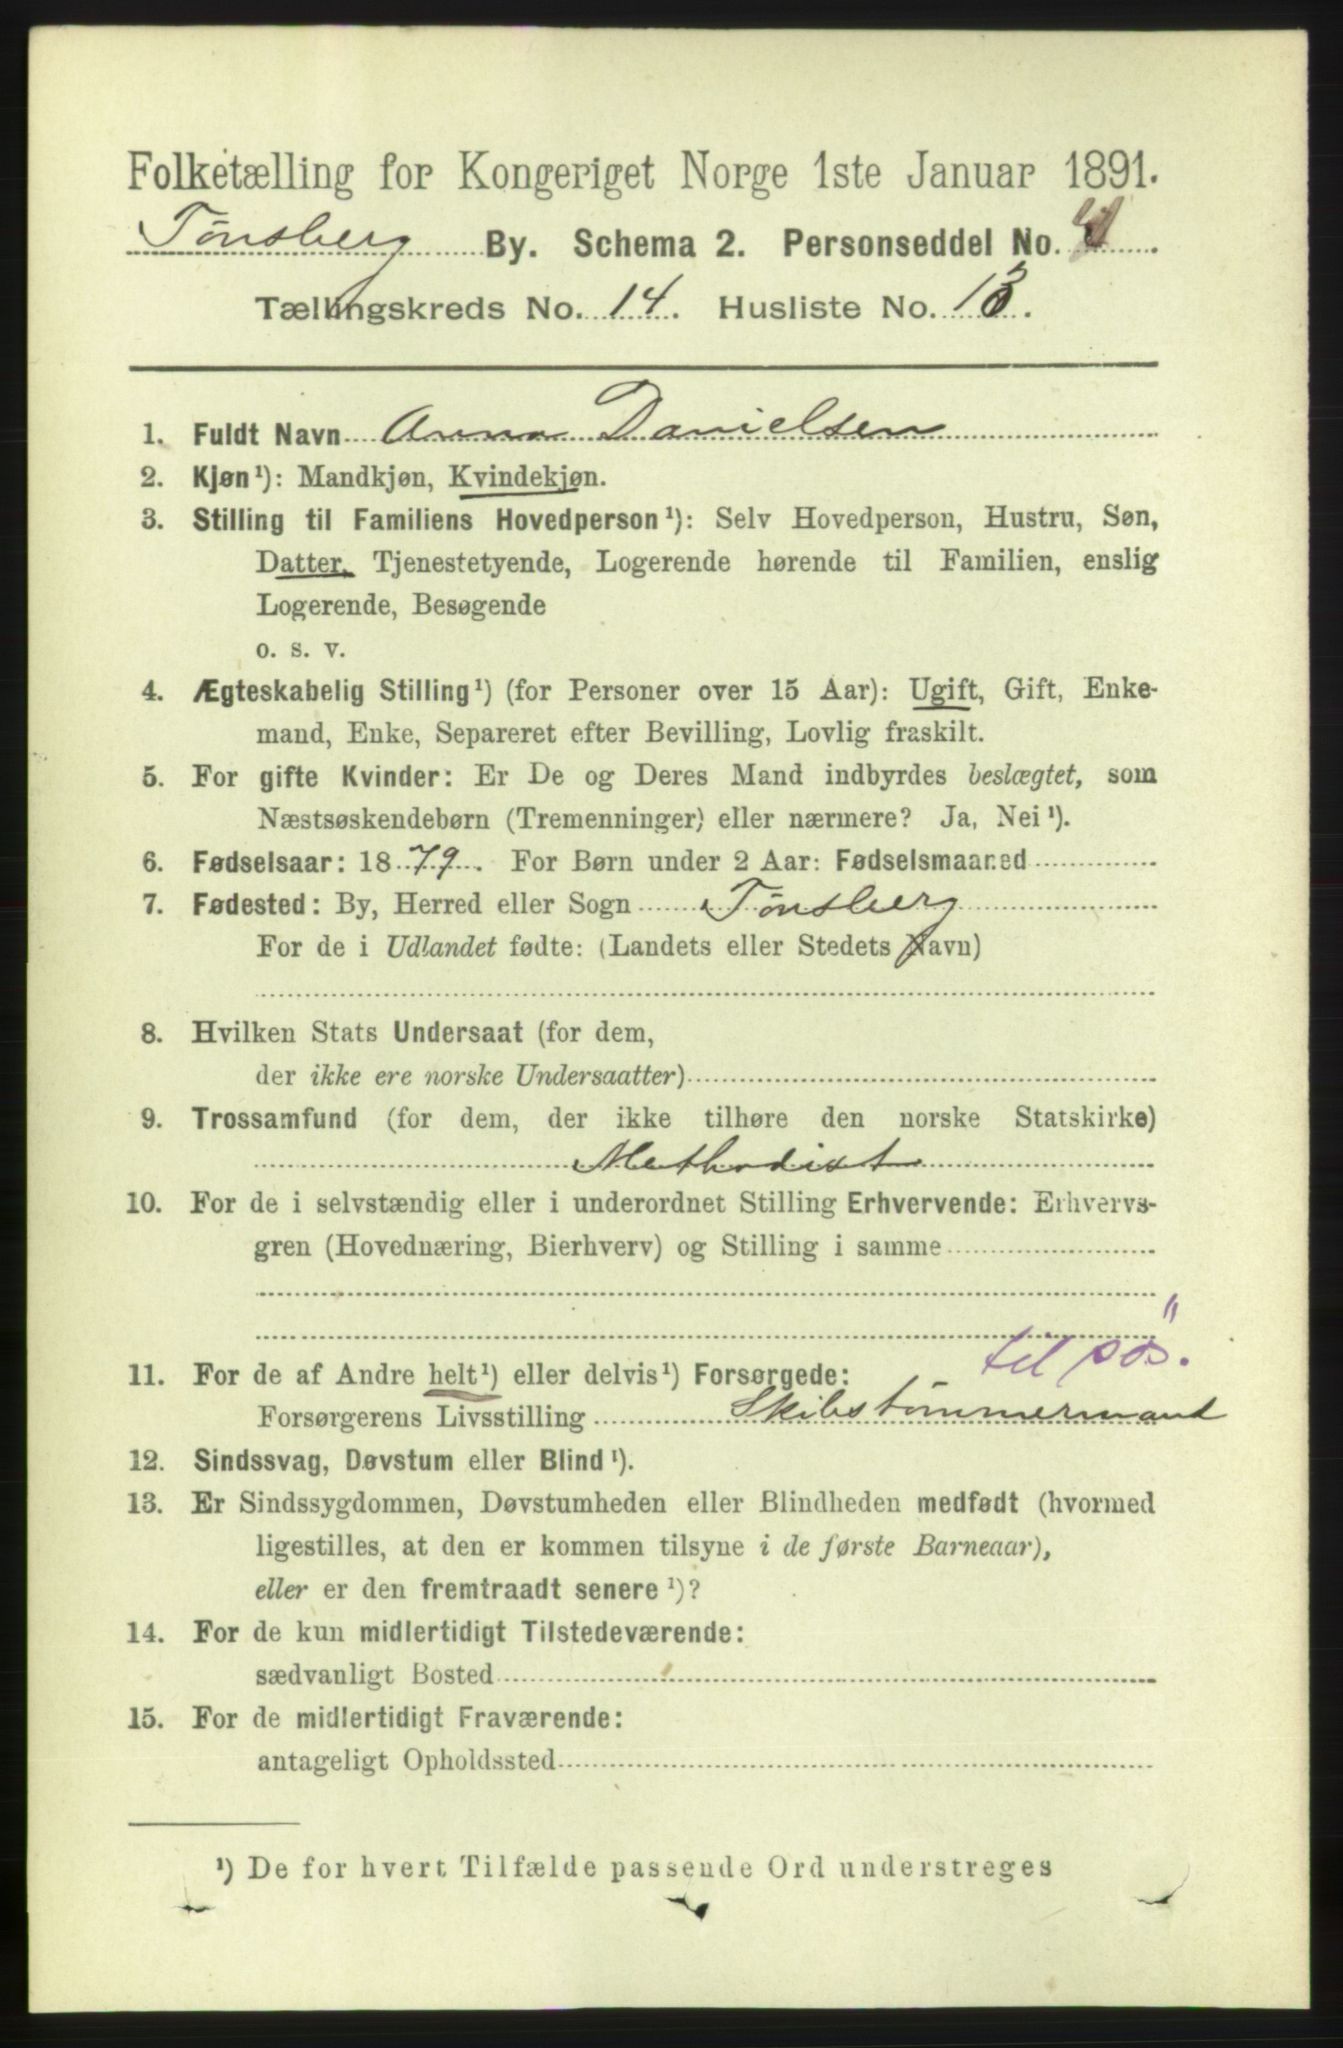 Folketælling for Kongeriget Norge 1ste Januar 1891.
Tønsberg By. Schema 2. Personseddel No.
Tællingskreds No. 14. Husliste No. 13.
1. Fuldt Navn Anna Danielsen
2. Kjøn¹): Mandkjøn, Kvindekjøn.
3. Stilling til Familiens Hovedperson¹): Selv Hovedperson, Hustru, Søn,
Datter, Tjenestetyende, Logerende hørende til Familien, enslig
Logerende, Besøgende
o. s. v.
4. Ægteskabelig Stilling¹) (for Personer over 15 Aar): Ugift, Gift, Enke-
mand, Enke, Separeret efter Bevilling, Lovlig fraskilt.
5. For gifte Kvinder: Er De og Deres Mand indbyrdes beslægtet, som
Næstsøskendebørn (Tremenninger) eller nærmere? Ja, Nei¹).
6. Fødselsaar: 1879. For Børn under 2 Aar: Fødselsmaaned
7. Fødested: By, Herred eller Sogn Tønsberg
For de i Udlandet fødte: (Landets eller Stedets Navn)
8. Hvilken Stats Undersaat (for dem,
der ikke ere norske Undersaatter)
9. Trossamfund (for dem, der ikke tilhøre den norske Statskirke)
Methodist
10. For de i selvstændig eller i underordnet Stilling Erhvervende: Erhvervs-
gren (Hovednæring, Bierhverv) og Stilling i samme
til søs.
11. For de af Andre helt¹) eller delvis¹) Forsørgede:
Forsørgerens Livsstilling Skibstømmermand
12. Sindssvag, Døvstum eller Blind¹).
13. Er Sindssygdommen, Døvstumheden eller Blindheden medfødt (hvormed
ligestilles, at den er kommen tilsyne i de første Barneaar),
eller er den fremtraadt senere¹)?
14. For de kun midlertidigt Tilstedeværende:
sædvanligt Bosted
15. For de midlertidigt Fraværende:
antageligt Opholdssted
¹) De for hvert Tilfælde passende Ord understreges